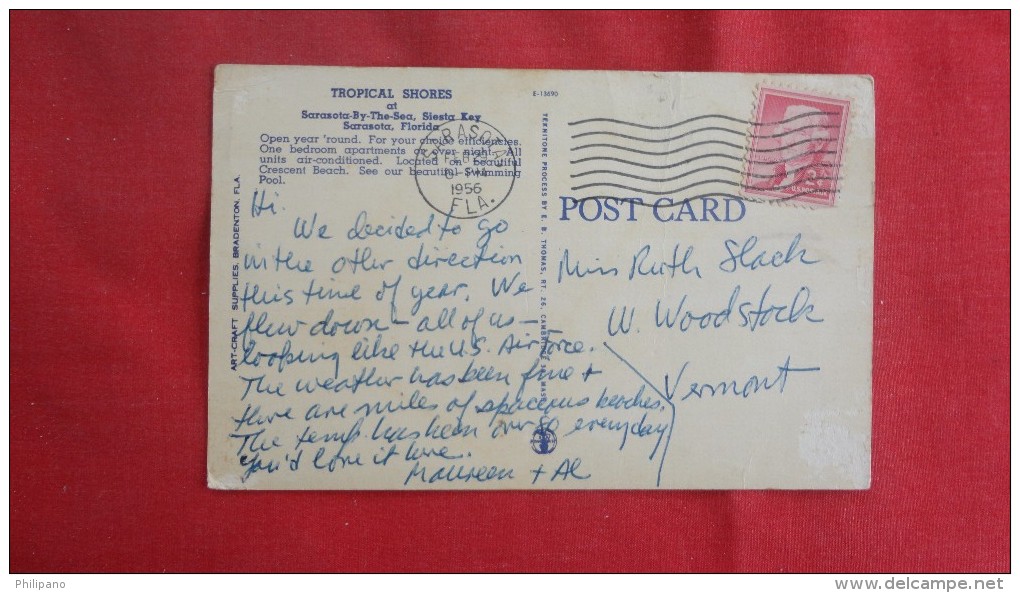 TROPICAL SHORES
at
Sarasota-By-The-Sea, Siesta Key
Sarasota, Florida
Open year 'round. For your choice efficiencies.
One bedroom apartments or over night. All
units air-conditioned. Located on beautiful
Crescent Beach. See our beautiful Swimming
Pool.
E-13690
SARASOTA
FEB
1956
FLA.
2¢
POST CARD
ART-CRAFT SUPPLIES, BRADENTON, FLA.
TERNITONE PROCESS BY E. B. THOMAS, RT. 26, CAMBRIDGE MASS
Hi.
We decided to go
in the other direction
this time of year. We
flew down – all of us –
looking like the U.S. Air Force.
The weather has been fine +
there are miles of spacious beaches.
The temp. has been over 80 everyday
You'd love it here.
Maureen + Al
Miss Ruth Slack
W. Woodstock
Vermont
Philipano
www.delcampe.net